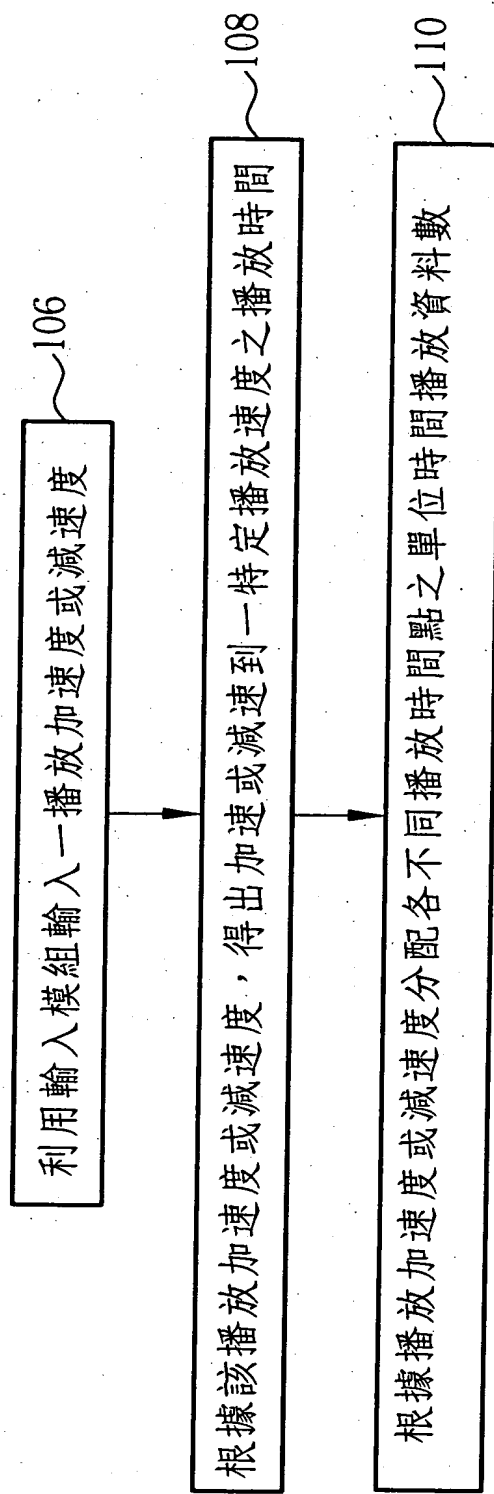 利用輸入模組輸入一播放加速度或減速度
106
根據該播放加速度或減速度，得出加速或減速到一特定播放速度之播放時間
108
根據播放加速度或減速度分配各不同播放時間點之單位時間播放資料數
110